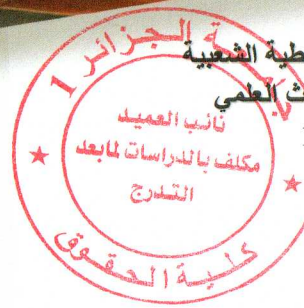 طية الشعبية
ث العلمي
جامعة الجزائر 1
نائب العميد
مكلف بالدراسات لمابعد
التدرج
كلية الحقوق